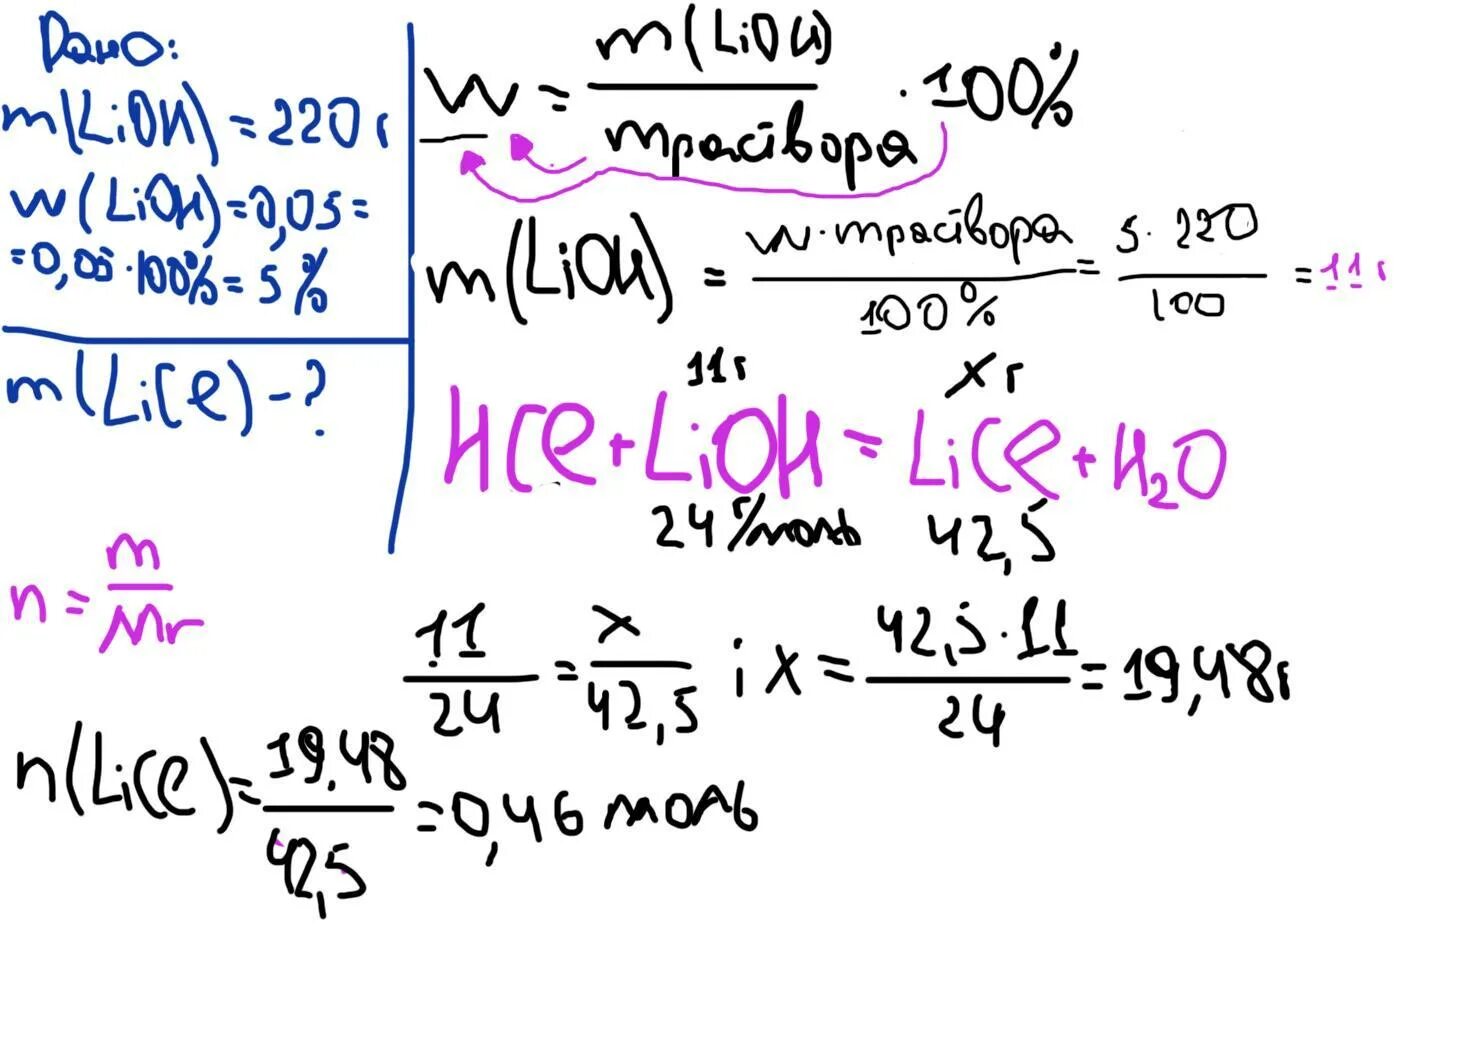 Дано:
m(LiOH) = 220 г
w(LiOH) = 0,05 =
= 0,05 · 100% = 5%
m(LiCl) - ?
w = m(LiOH) / m раствора · 100%
m(LiOH) = w · m раствора / 100% = 5 · 220 / 100 = 11 г
11 г x г
HCl + LiOH = LiCl + H₂O
24 г/моль 42,5
n = m / Mr
11 / 24 = x / 42,5 ; x = 42,5 · 11 / 24 = 19,48 г
n(LiCl) = 19,48 / 42,5 = 0,46 моль